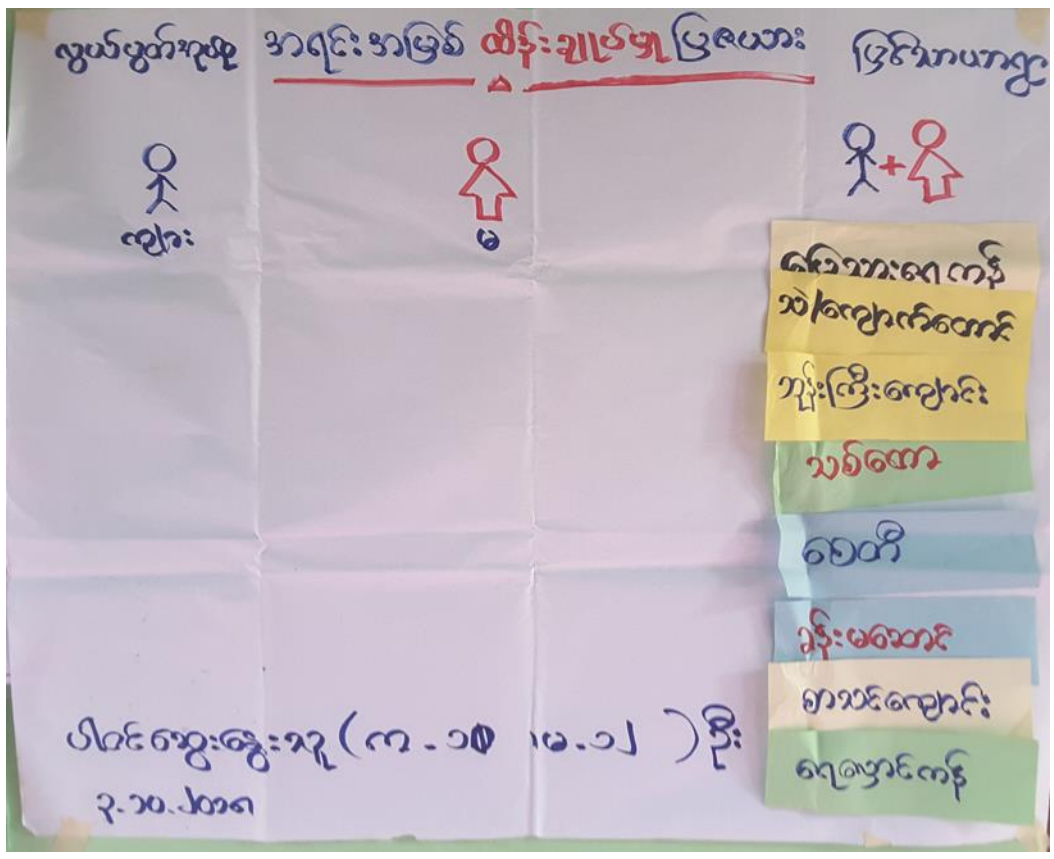 လွယ်ပွတ်အုပ်စု အရင်းအမြစ် ထိန်းချုပ်မှု ပြဇယား ပြင်သာယာရွာ
ကျား
မ
+
မြေသားရေကန်
သဲ/ကျောက်တောင်
ဘုန်းကြီးကျောင်း
သစ်တော
စေတီ
ခန်းမဆောင်
စာသင်ကျောင်း
ရေလှောင်ကန်
ပါဝင်ဆွေးနွေးသူ (က-၁၀ မ-၁၂) ဦး
၃.၁၀.၂၀၁၈